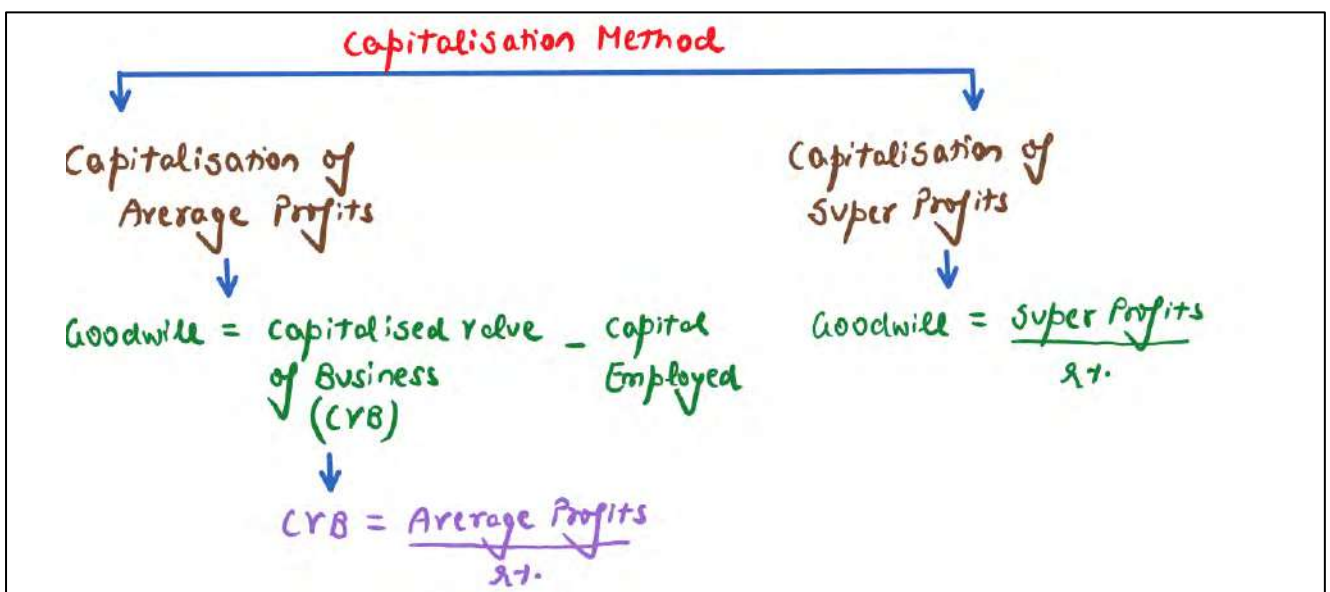 Capitalisation Method
Capitalisation of
Average Profits
Goodwill = Capitalised value - Capital
of Business Employed
(CVB)
CVB = Average Profits
r%.
Capitalisation of
Super Profits
Goodwill = Super Profits
r%.